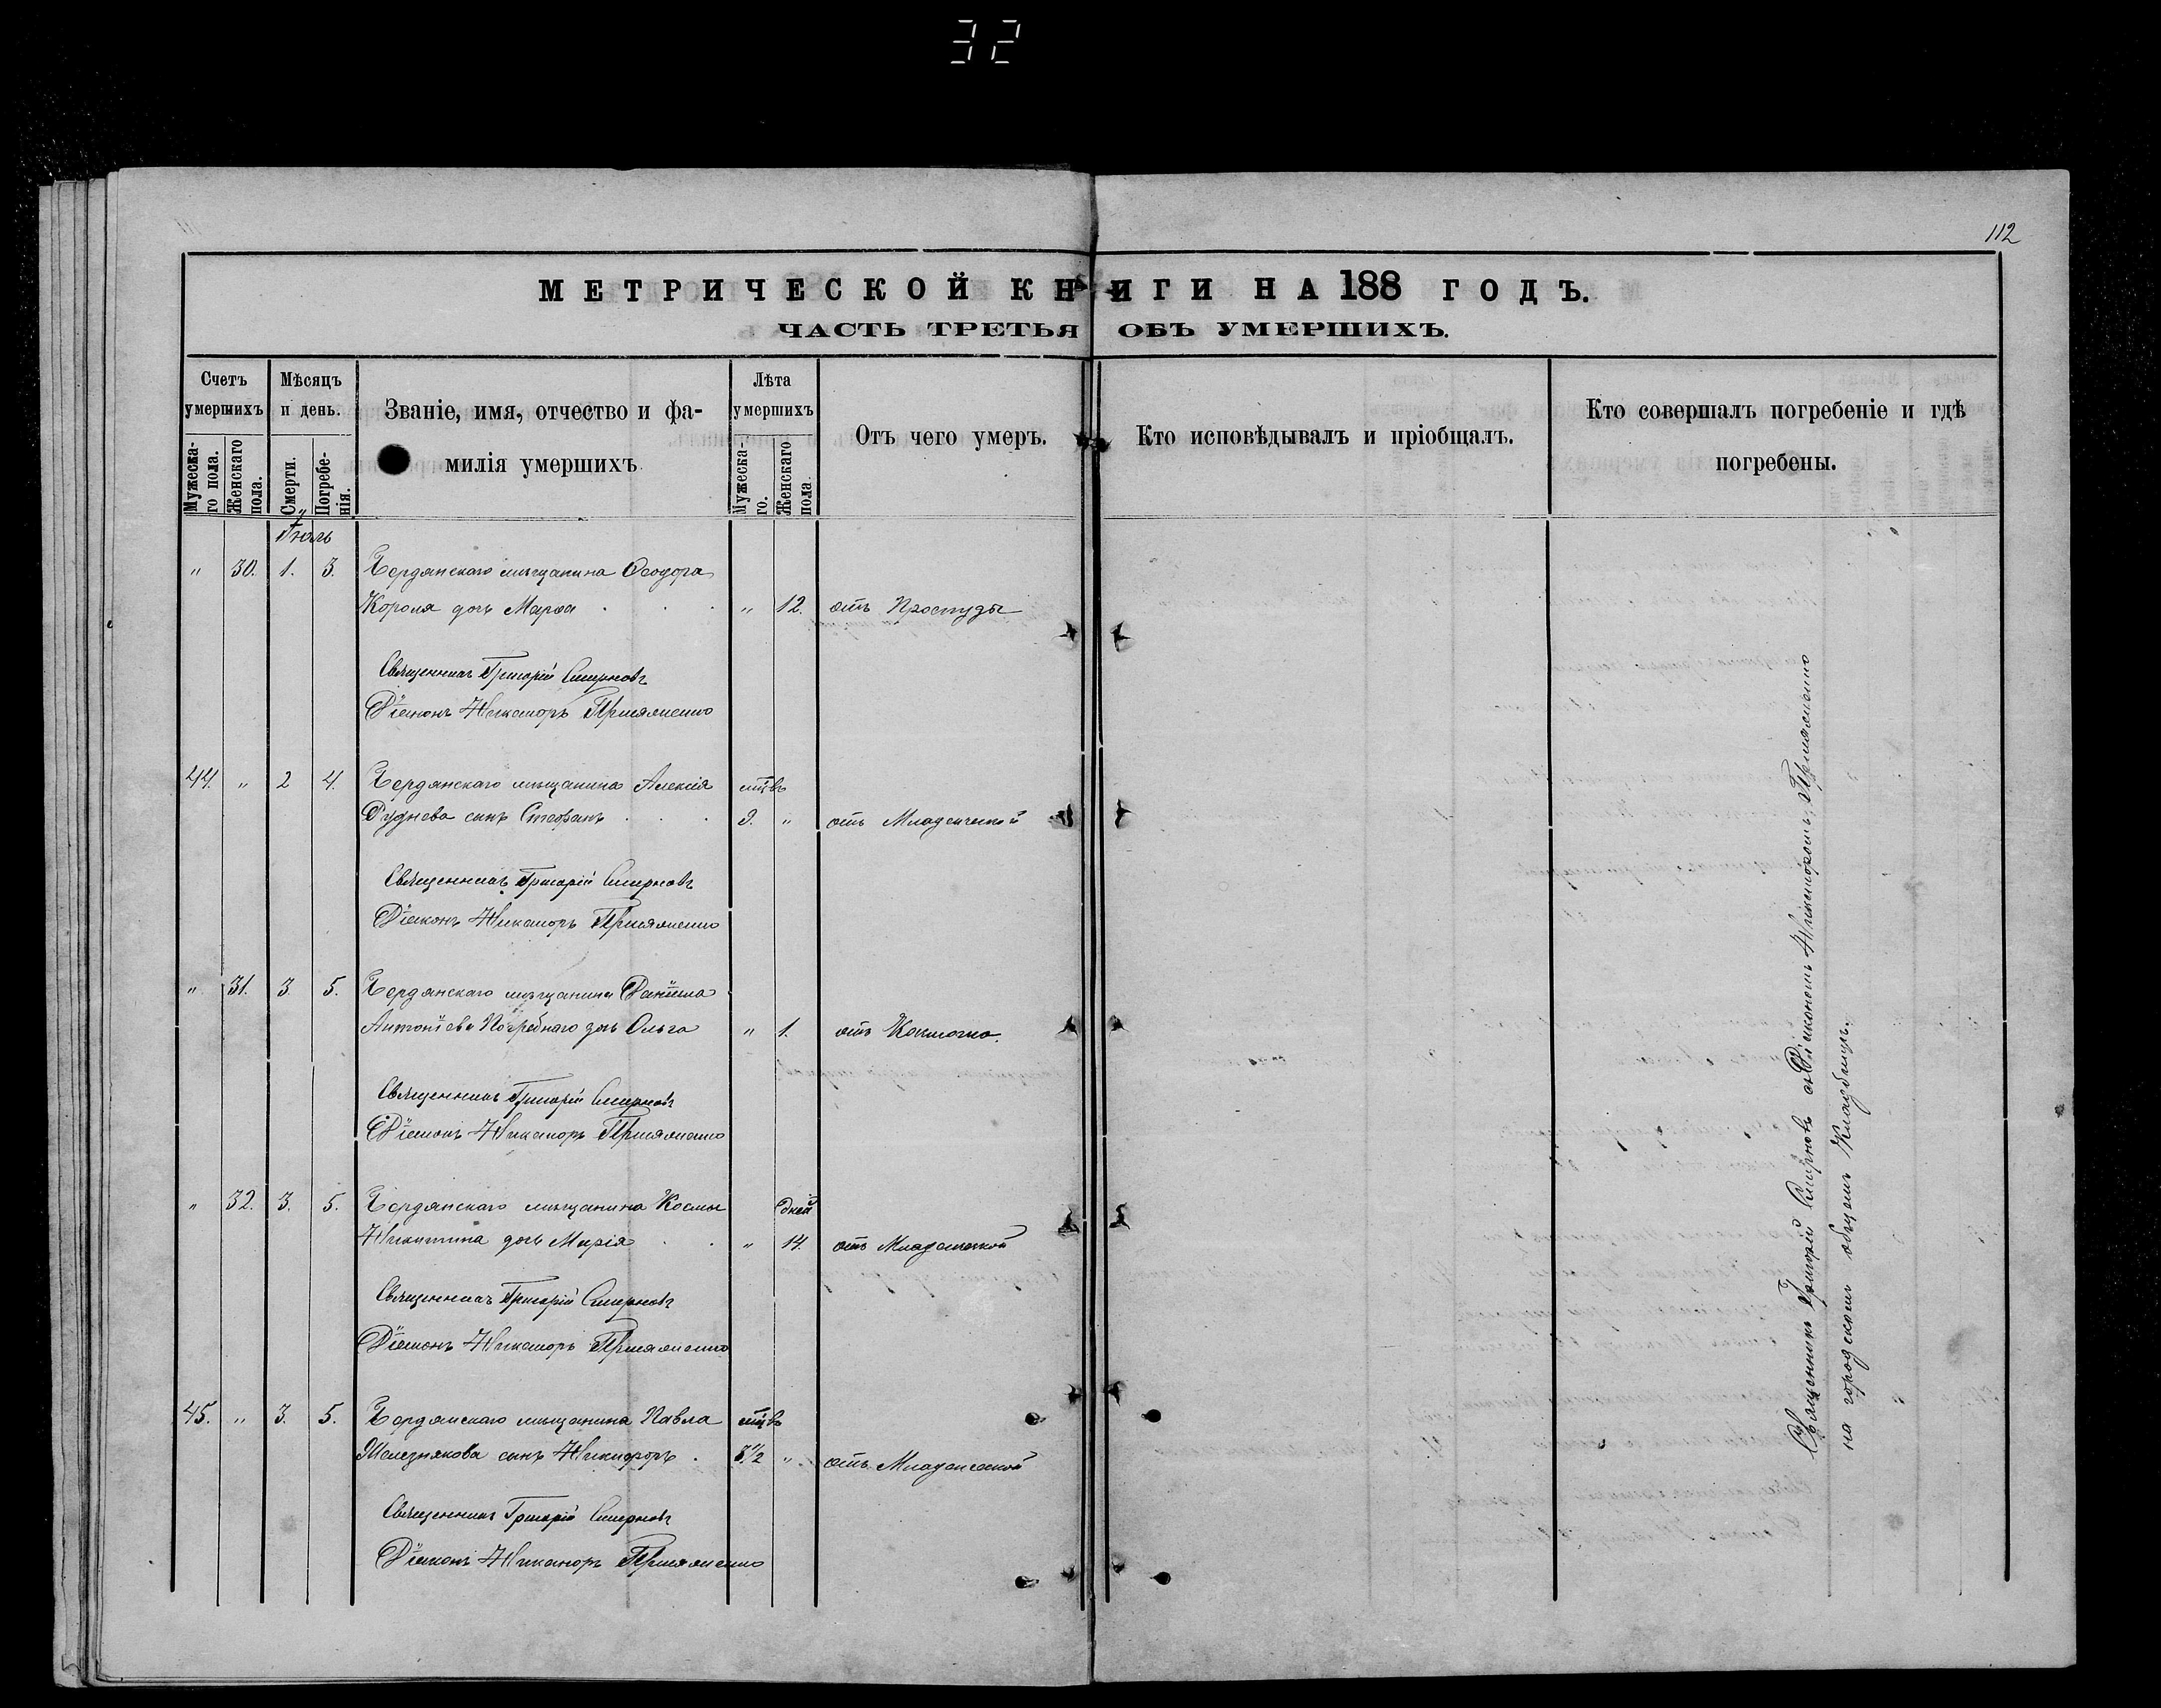 32
112
МЕТРИЧЕСКОЙ КНИГИ НА 188 ГОДЪ.
ЧАСТЬ ТРЕТЬЯ ОБЪ УМЕРШИХЪ.
Счетъ умершихъ
Мужеска-го пола.
Женскаго пола.
Мѣсяцъ и день.
Смерти.
Погребе-нія.
Званіе, имя, отчество и фа-
милія умершихъ
Лѣта умершихъ
Мужеска-го.
Женскаго пола.
Отъ чего умеръ.
Кто исповѣдывалъ и пріобщалъ.
Кто совершалъ погребеніе и гдѣ
погребены.
Іюль
" 30. 1. 3. Бердянскаго мѣщанина Ѳеодора
Короля дочь Марѳа " 12. отъ Простуды
Священникъ Григорій Смирновъ
Діаконъ Никаноръ
44. " 2 4. Бердянскаго мѣщанина Алексія мѣв
Руднева сынъ Стефанъ 9. " отъ Младенческой
Священникъ Григорій Смирновъ
Діаконъ Никаноръ
" 31. 3. 5. Бердянскаго мѣщанина Даніила
Антоніева Погребнаго дочь Ольга " 1. отъ
Священникъ Григорій Смирновъ
Діаконъ Никаноръ
" 32. 3. 5. Бердянскаго мѣщанина Космы дней
Никитина дочь Марія " 14. отъ Младенческой
Священникъ Григорій Смирновъ
Діаконъ Никаноръ
45. " 3. 5. Бердянскаго мѣщанина Павла мѣв
Железнякова сынъ Никифоръ 3 1/2 " отъ Младенческой
Священникъ Григорій Смирновъ
Діаконъ Никаноръ
Священникъ Григорій Смирновъ съ Діакономъ Никаноромъ
на городскомъ общемъ Кладбищѣ.